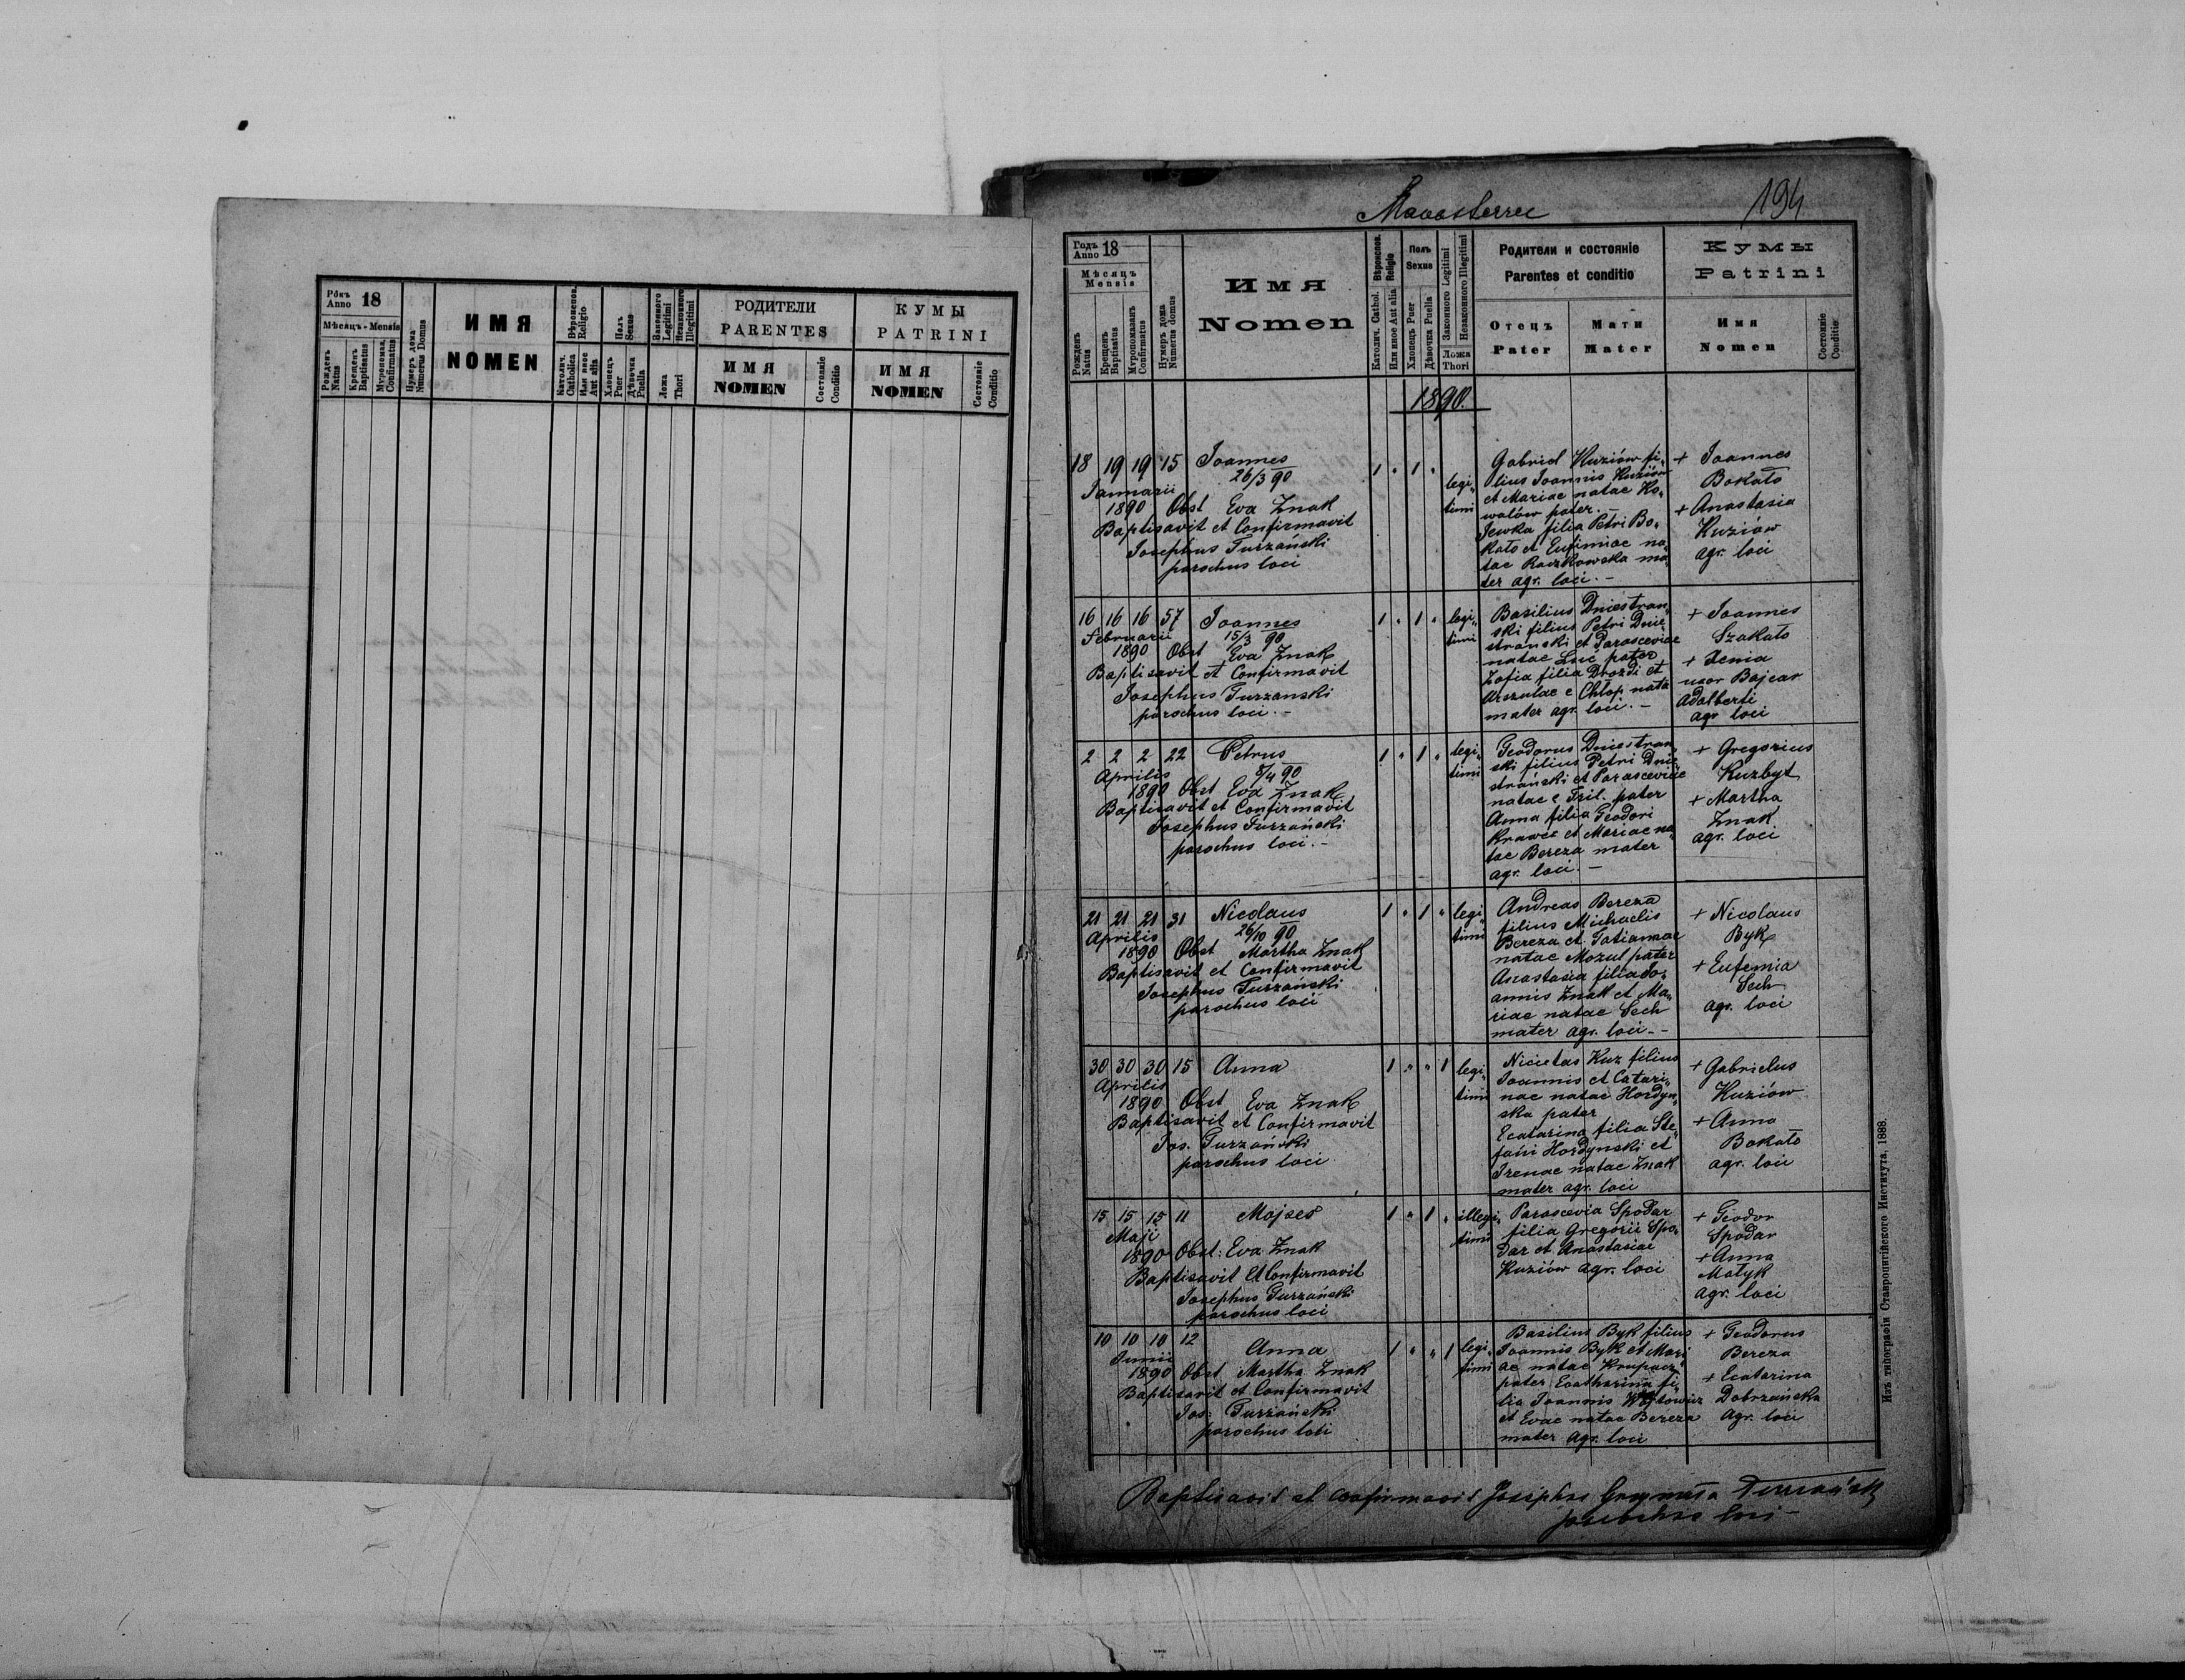 Рôкъ
Anno 18
Мѣсяцъ - Mensis
Рожденъ
Natus
Крещенъ
Baptisatus
Мѵропомаз.
Confirmatus
Нумеръ дома
Numerus Domus
ИМЯ
NOMEN
Вѣроиспов.
Religio
Католич.
Catholica
Или иное
Aut alia
Полъ
Sexus
Хлопецъ
Puer
Дѣвочка
Puella
Законного
Legitimi
Незаконного
Illegitimi
Ложа
Thori
РОДИТЕЛИ
PARENTES
ИМЯ
NOMEN
Состоянiе
Conditio
КУМЫ
PATRINI
ИМЯ
NOMEN
Состоянiе
Conditio
194
Годъ
Anno 18
Мѣсяцъ
Mensis
Рожденъ
Natus
Крещенъ
Baptisatus
Мѵропомазанъ
Confirmatus
Нумеръ дома
Numerus domus
Имя
Nomen
Вѣроиспов.
Religio
Католич. Cathol.
Или иное Aut alia
Полъ
Sexus
Хлопецъ Puer
Дѣвочка Puella
Законного Legitimi
Незаконного Illegitimi
Ложа
Thori
Родители и состоянiе
Parentes et conditio
Отецъ
Pater
Мати
Mater
Кумы
Patrini
Имя
Nomen
Состоянiе
Conditio
1890.
18 19 19 15 Joannes
26/3 90
Januarii
1890 Obst Eva Znak
Baptisavit et Confirmavit
Josephus Turzański
parochus loci
1 " 1 "
legi„
timi
Gabriel Kuziów fi„
lius Joannis Kuziów
et Mariae natae Ko„
walów pater. -
Jewka filia Petri Bo„
kało et Eufimiae na„
tae Raczkowska ma„
ter agr. loci. -
+ Joannes
Bokało
+ Anastasia
Kuziów
agr. loci
16 16 16 57 Joannes
15/3 90
Februarii
1890 Obst Eva Znak
Baptisavit et Confirmavit
Josephus Turzanski
parochus loci. -
1 " 1 "
legi„
timi
Basilius Dniestran„
ski filius Petri Dnie„
strański et Parasceviae
natae Luc pater
Zofia filia Drozdi et
Chłop nata
mater agr. loci. -
+ Joannes
Szakało
+ Xenia
uxor Bajcar
Adalberti
agr loci
2 2 2 22 Petrus
8/4 90
Aprilis
1890 Obst Eva Znak
Baptisavit et Confirmavit
Josephus Turzański
parochus loci. -
1 " 1 "
legi„
timi
Teodorus Dniestran„
ski filius Petri Dnie„
strański et Parasceviae
natae pater
Anna filia Teodori
Krawec et Mariae na„
tae Bereza mater
agr. loci -
+ Gregorius
Kuzbyt
+ Martha
Znak
agr. loci
21 21 21 31 Nicolaus
26/10 90
Aprilis
1890 Obst Martha Znak
Baptisavit et Confirmavit
Josephus Turzanski
parochus loci
1 " 1 "
legi„
timi
Andreas Bereza
filius Michaelis
Bereza et Tatiannae
natae Mozul pater
Anastasia filia Jo„
annis Znak et Ma„
riae natae Sech
mater agr. loci -
+ Nicolaus
Byk
+ Eufemia
Sech
agr. loci
30 30 30 15 Anna
Aprilis
1890 Obst Eva Znak
Baptisavit et Confirmavit
Jos. Turzański
parochus loci
1 " " 1
legi„
timi
Nicietas Kuz filius
Joannis et Catari„
nae natae Hordyn„
ska pater
Ecatarina filia Ste„
fani Hordynski et
Irenae natae Znak
mater agr. loci
+ Gabrielus
Kuziów
+ Anna
Bokało
agr. loci
15 15 15 11 Mojses
Maji
1890 Obst: Eva Znak
Baptisavit et Confirmavit
Josephus Turzański
parochus loci
1 " 1 "
illegi„
timi
Parascevia Spodar
filia Gregorii Spo„
dar et Anastasiae
Kuziów agr. loci
+ Teodor
Spodar
+ Anna
Matyk
agr. loci
10 10 10 12 Anna
Junii
1890 Obst Martha Znak
Baptisavit et Confirmavit
Jos: Turzański
parochus loci
1 " " 1
legi„
timi
Basilius Byk filius
Joannis Byk et Mari„
ae natae Krupacz
pater Ecatharina fi„
lia Joannis
et Evae natae Bereza
mater agr. loci
+ Teodorus
Bereza
+ Ecatarina
Dobrzańska
agr. loci
Baptisavit et confirmavit Josephus Turzański
parochus loci -
Изъ типографiи Ставропигiйского Института, 1888.